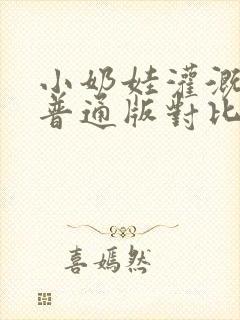 小奶娃灌溉
普通版對比
喜嫣然